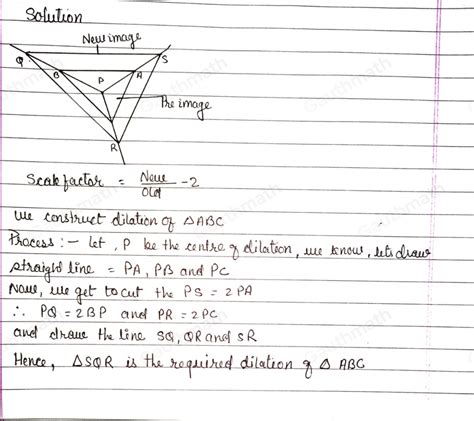 Solution
New image
Q
S
B
A
P
Pre image
R
Scale factor = New/Old = 2
we construct dilation of △ABC
Process :- let, P be the centre of dilation, we know, lets draw
straight line = PA, PB and PC
Now, we get to cut the PS = 2PA
∴ PQ = 2BP and PR = 2PC
and draw the line SQ, QR and SR
Hence, △SQR is the required dilation of △ ABC
Gauthmath